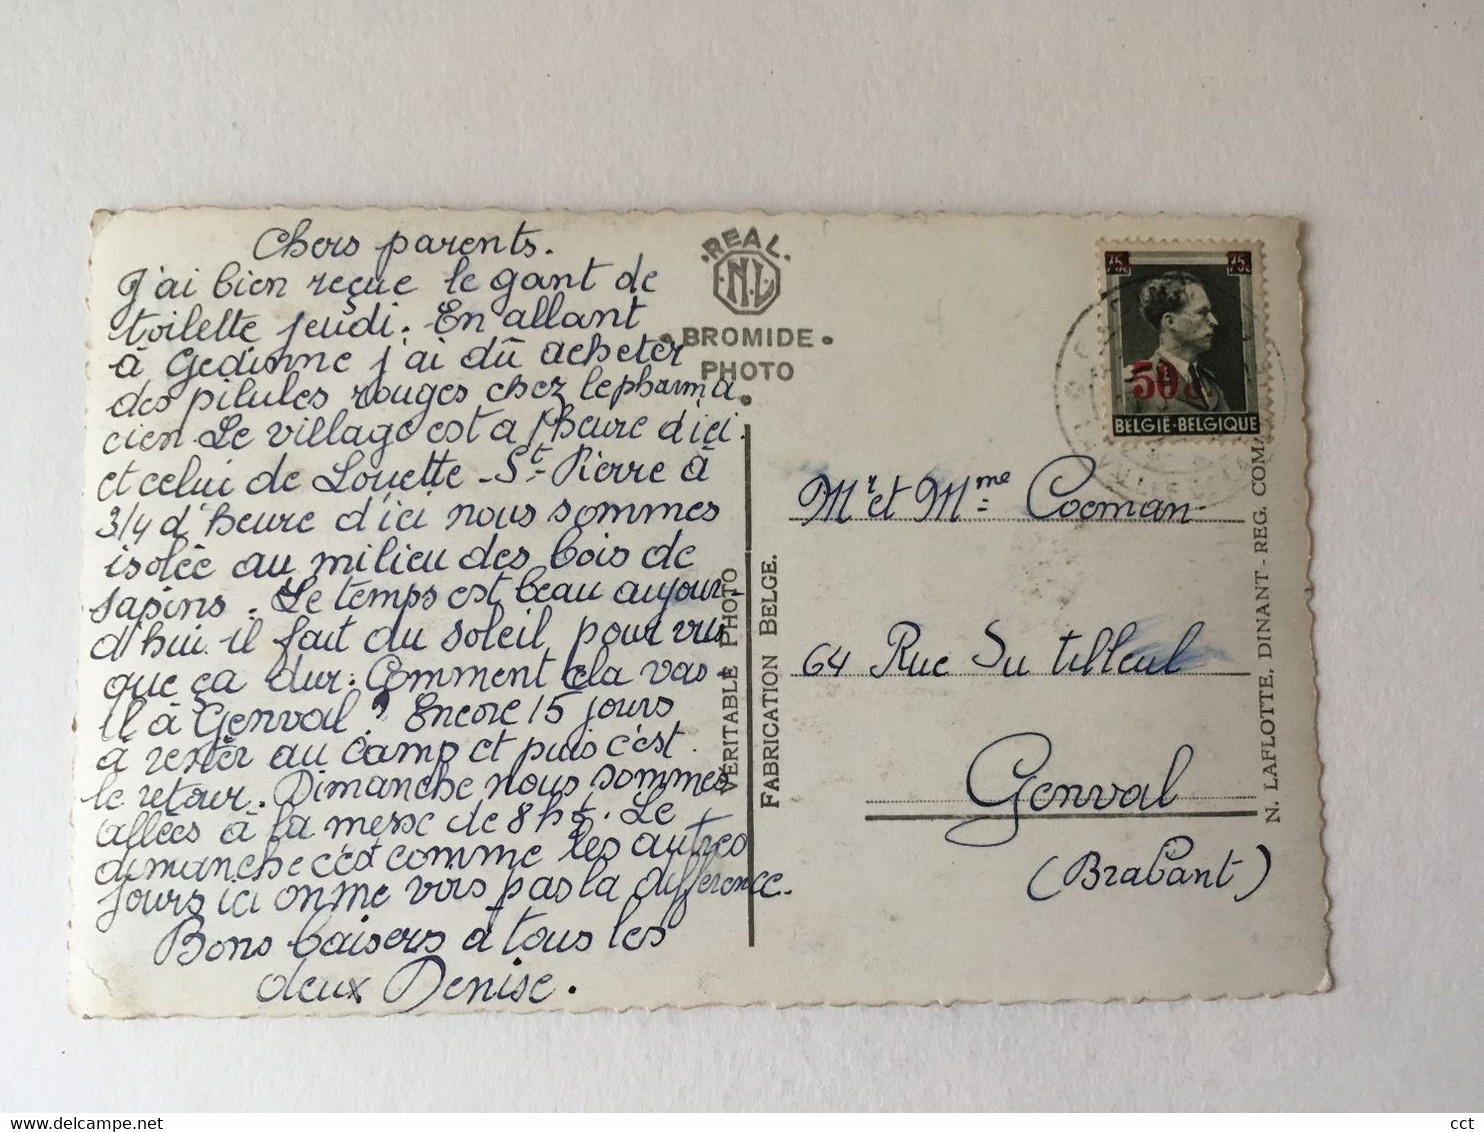 Chers parents.
J'ai bien reçue le gant de
toilette jeudi. En allant
à Gedinne j'ai dû acheter
des pilules rouges chez le pharma
cien. Le village est a 1 heure d'ici.
et celui de Louette-St-Pierre à
3/4 d'heure d'ici nous sommes
isolée au milieu des bois de
sapins. Le temps est beau aujour-
d'hui il fait du soleil, pour vu
que ça dur. Comment cela vas-
il à Genval? Encore 15 jours
à rester au camp et puis c'est
le retour. Dimanche nous sommes
allées à la messe de 8 h. Le
dimanche c'est comme les autres
jours ici on me vois pas la différence.
Bons baisers a tous les
deux Denise.
REAL
N.L.
BROMIDE
PHOTO
VÉRITABLE PHOTO
FABRICATION BELGE.
75c 75c
50c
BELGIE-BELGIQUE
Mr et Mme Cocman
64 Rue Du tilleul
Genval
(Brabant)
N. LAFLOTTE, DINANT - REG. COM.
cct